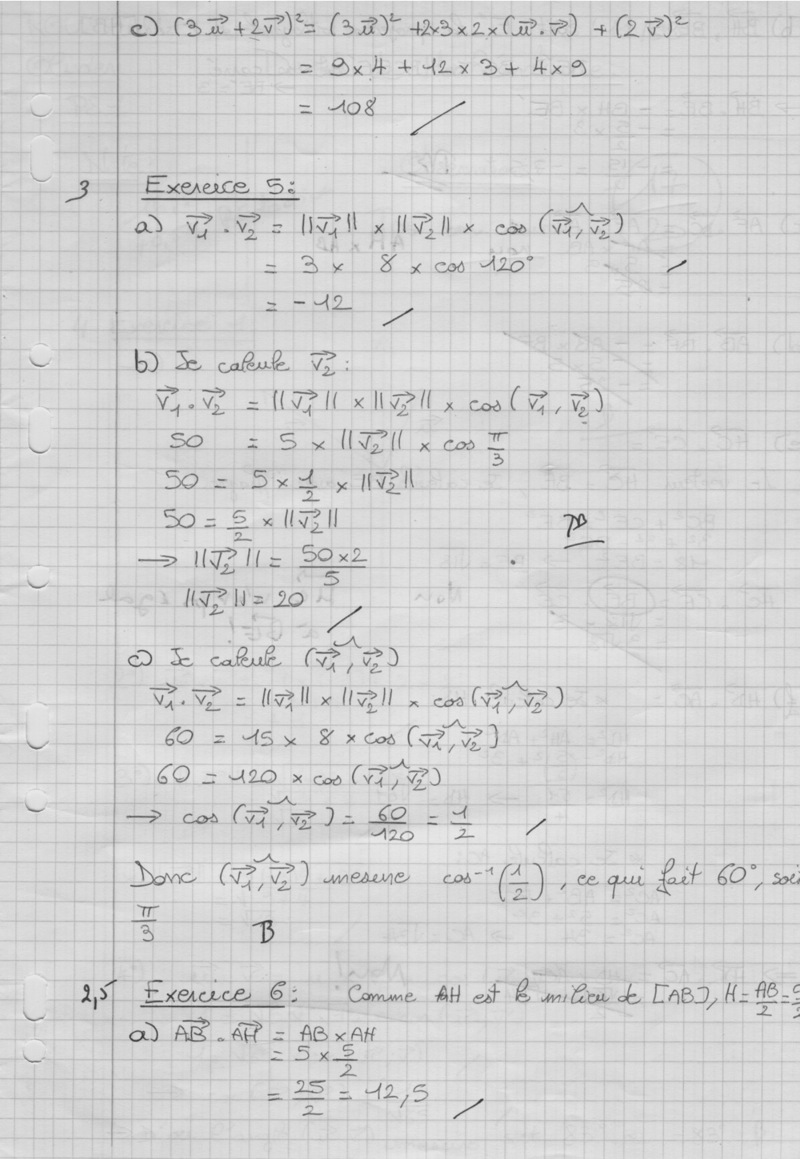 c) (3u⃗ + 2v⃗)² = (3u⃗)² + 2×3×2×(u⃗.v⃗) + (2v⃗)²
= 9×4 + 12×3 + 4×9
= 108
3 Exercice 5:
a) v₁⃗ . v₂⃗ = ||v₁⃗|| × ||v₂⃗|| × cos (v₁⃗, v₂⃗)
= 3 × 8 × cos 120°
= -12
b) Je calcule v₂⃗ :
v₁⃗ . v₂⃗ = ||v₁⃗|| × ||v₂⃗|| × cos (v₁⃗, v₂⃗)
50 = 5 × ||v₂⃗|| × cos π/3
50 = 5 × 1/2 × ||v₂⃗||
50 = 5/2 × ||v₂⃗||
TB
→ ||v₂⃗|| = 50×2/5
||v₂⃗|| = 20
c) Je calcule (v₁⃗, v₂⃗)
v₁⃗ . v₂⃗ = ||v₁⃗|| × ||v₂⃗|| × cos (v₁⃗, v₂⃗)
60 = 15 × 8 × cos (v₁⃗, v₂⃗)
60 = 120 × cos (v₁⃗, v₂⃗)
→ cos (v₁⃗, v₂⃗) = 60/120 = 1/2
Donc (v₁⃗, v₂⃗) mesure cos⁻¹(1/2), ce qui fait 60°, soi
π/3 B
2,5 Exercice 6: Comme AH est le milieu de [AB), H = AB/2 =
a) AB⃗ . AH⃗ = AB × AH
= 5 × 5/2
= 25/2 = 12,5